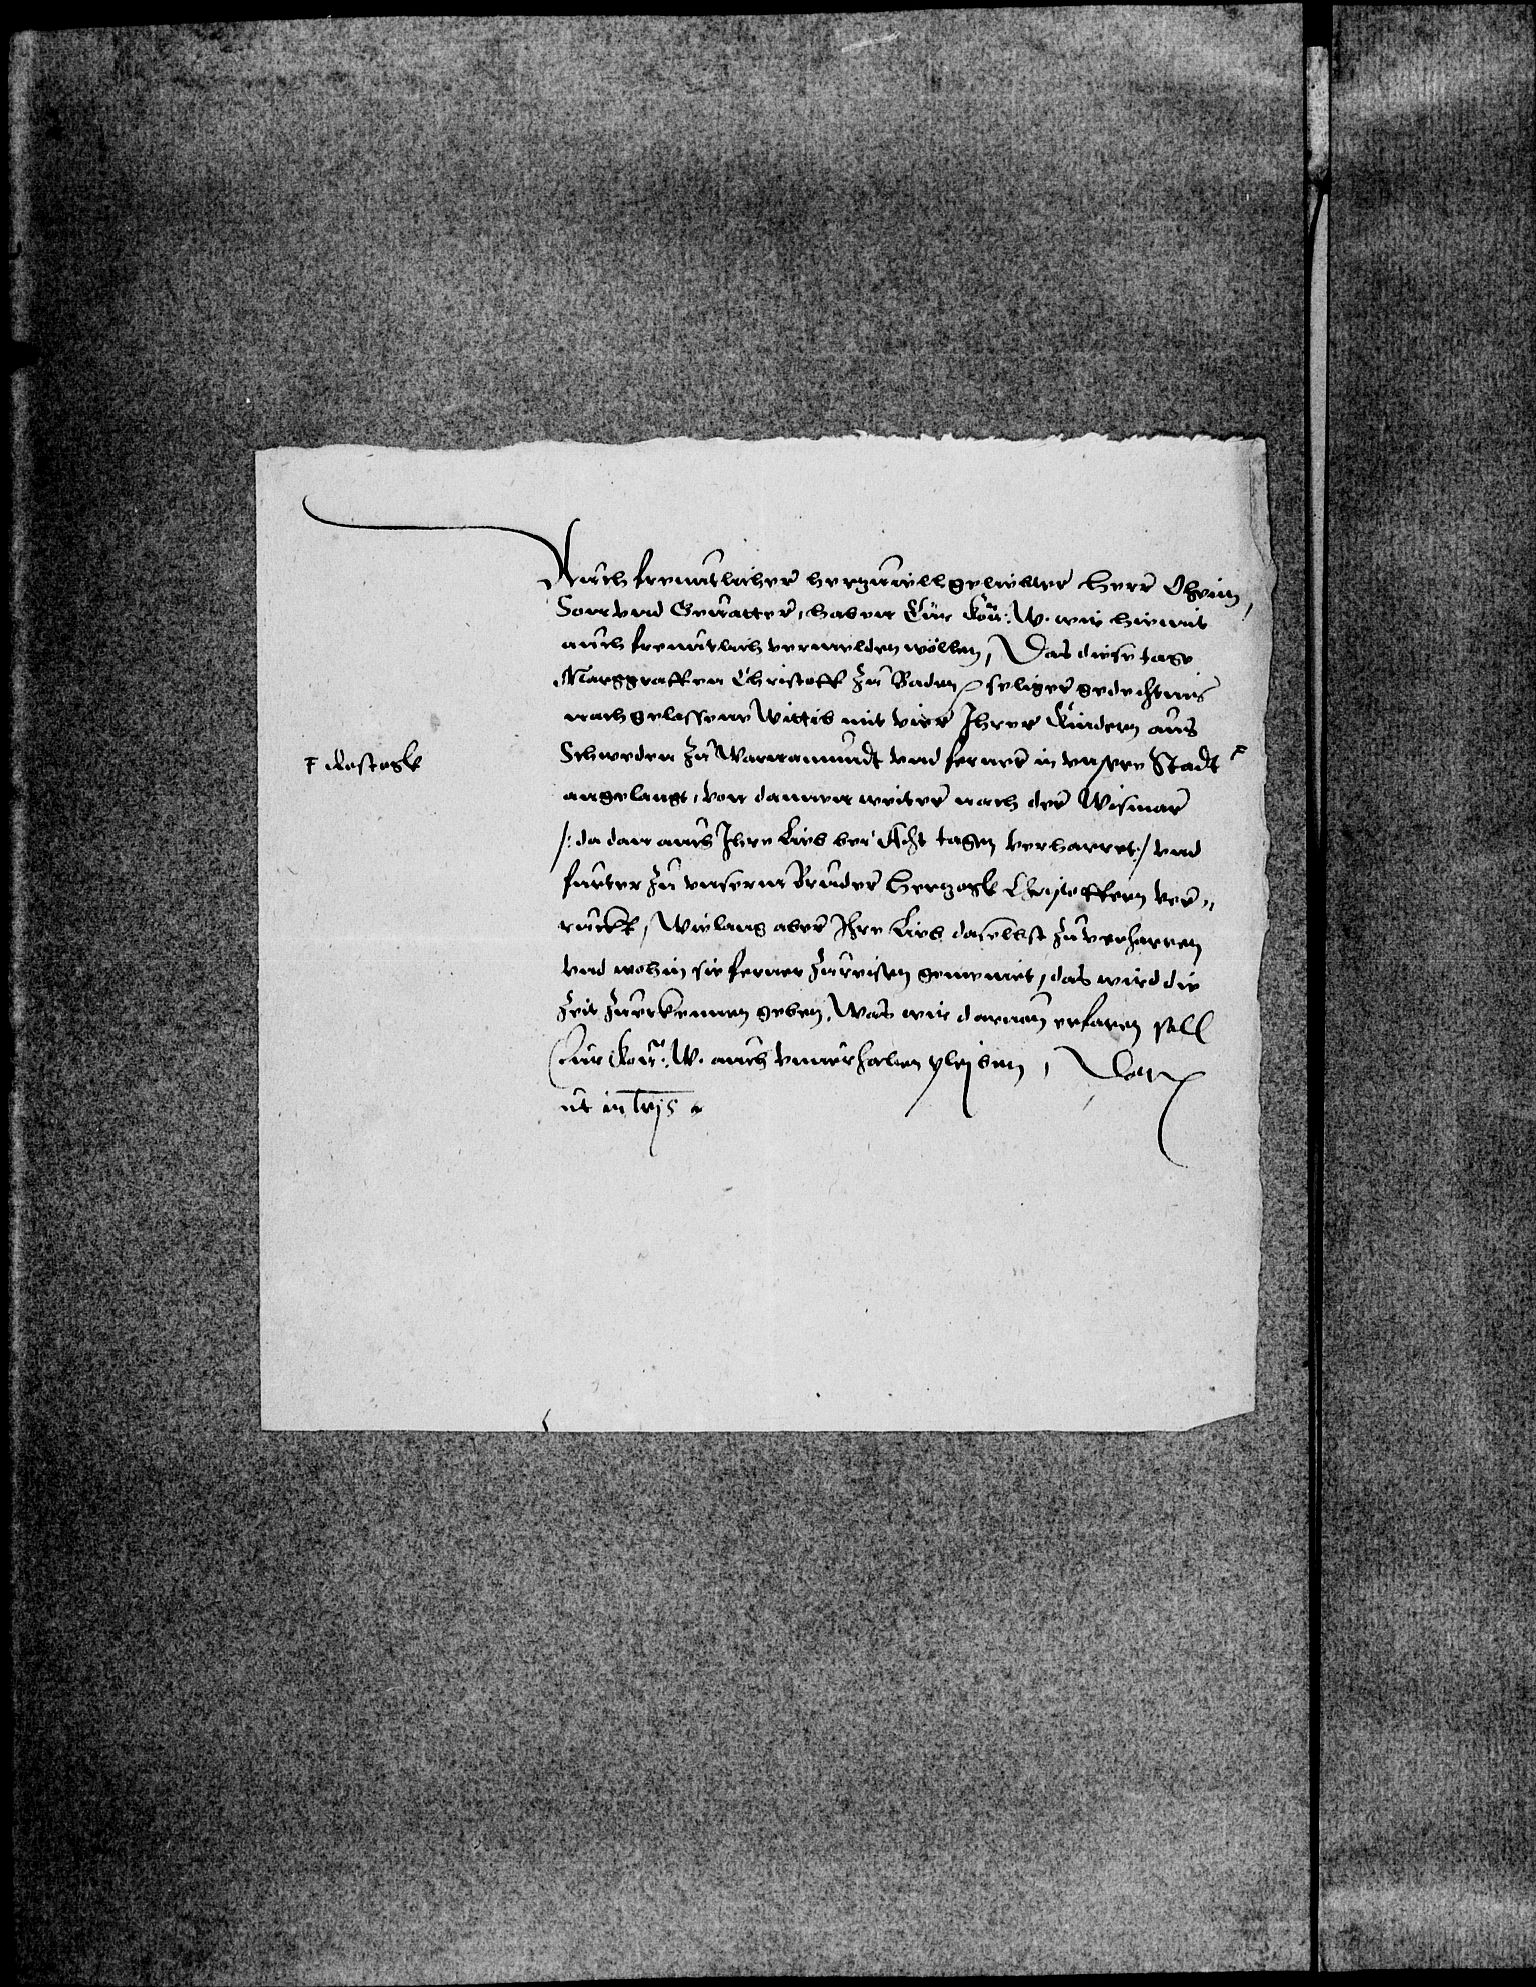 Auch freuntlicher hertzuillgeliebter Herr Oheim,
Son vnd Geuatter, haben Eur Kön: W. wir hiemit
auch freuntlich vermelden wöllen, Das diese tage
Marggraffen Christoff zu Baden seliger gedechtnis
nachgelassene Wittib mit vier Ihrer Kindern aus
Schweden zu Warnamundt vnd ferner in vnsere Stadt ꝼ
ꝼ Rostogk
angelangt, von dannen weiter nach der Wismar
/: da dan auch Ihre Lieb bei Acht tagen verharret :/ vnd
furter zu vnserm Bruder Hertzogk Christoffern ver„
ruckt, Wielang aber Ihre Lieb daselbst zuverharren
vnd wohin sie ferner zureisen gemeint, das wird die
Zeit zuerkennen geben, Was wir darvon erfaren soll
Eur Kön: W. auch vnuerhalten pleiben, Dat
ut in lrijs